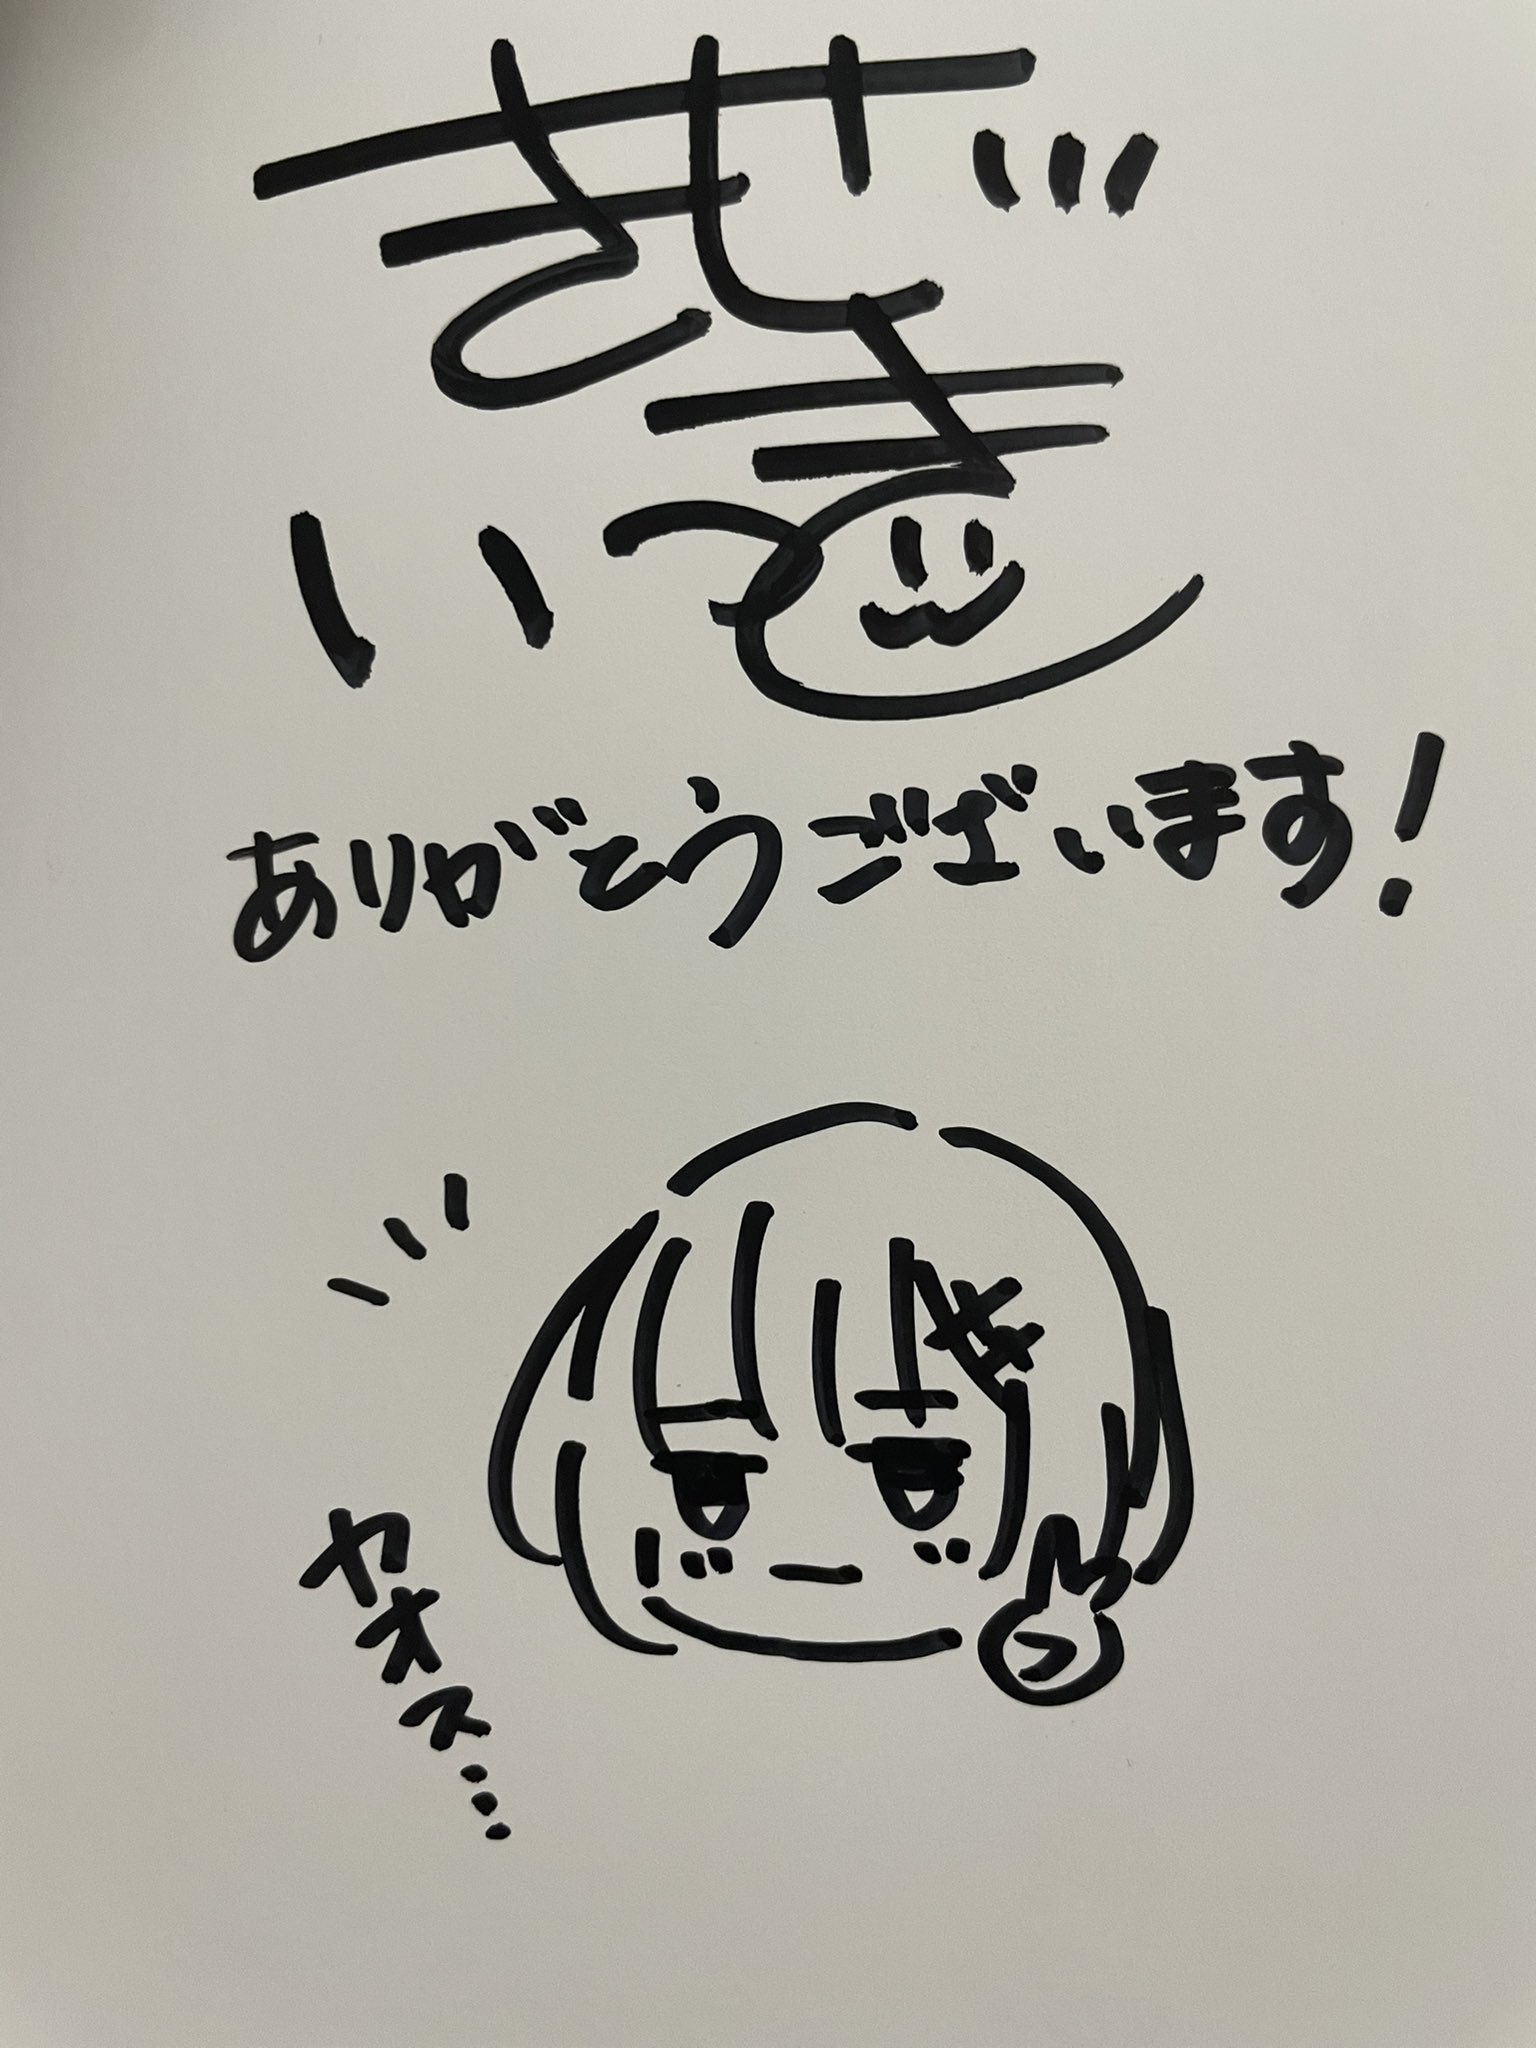 きぜ
いつき
ありがとうございます!
ヤオス…